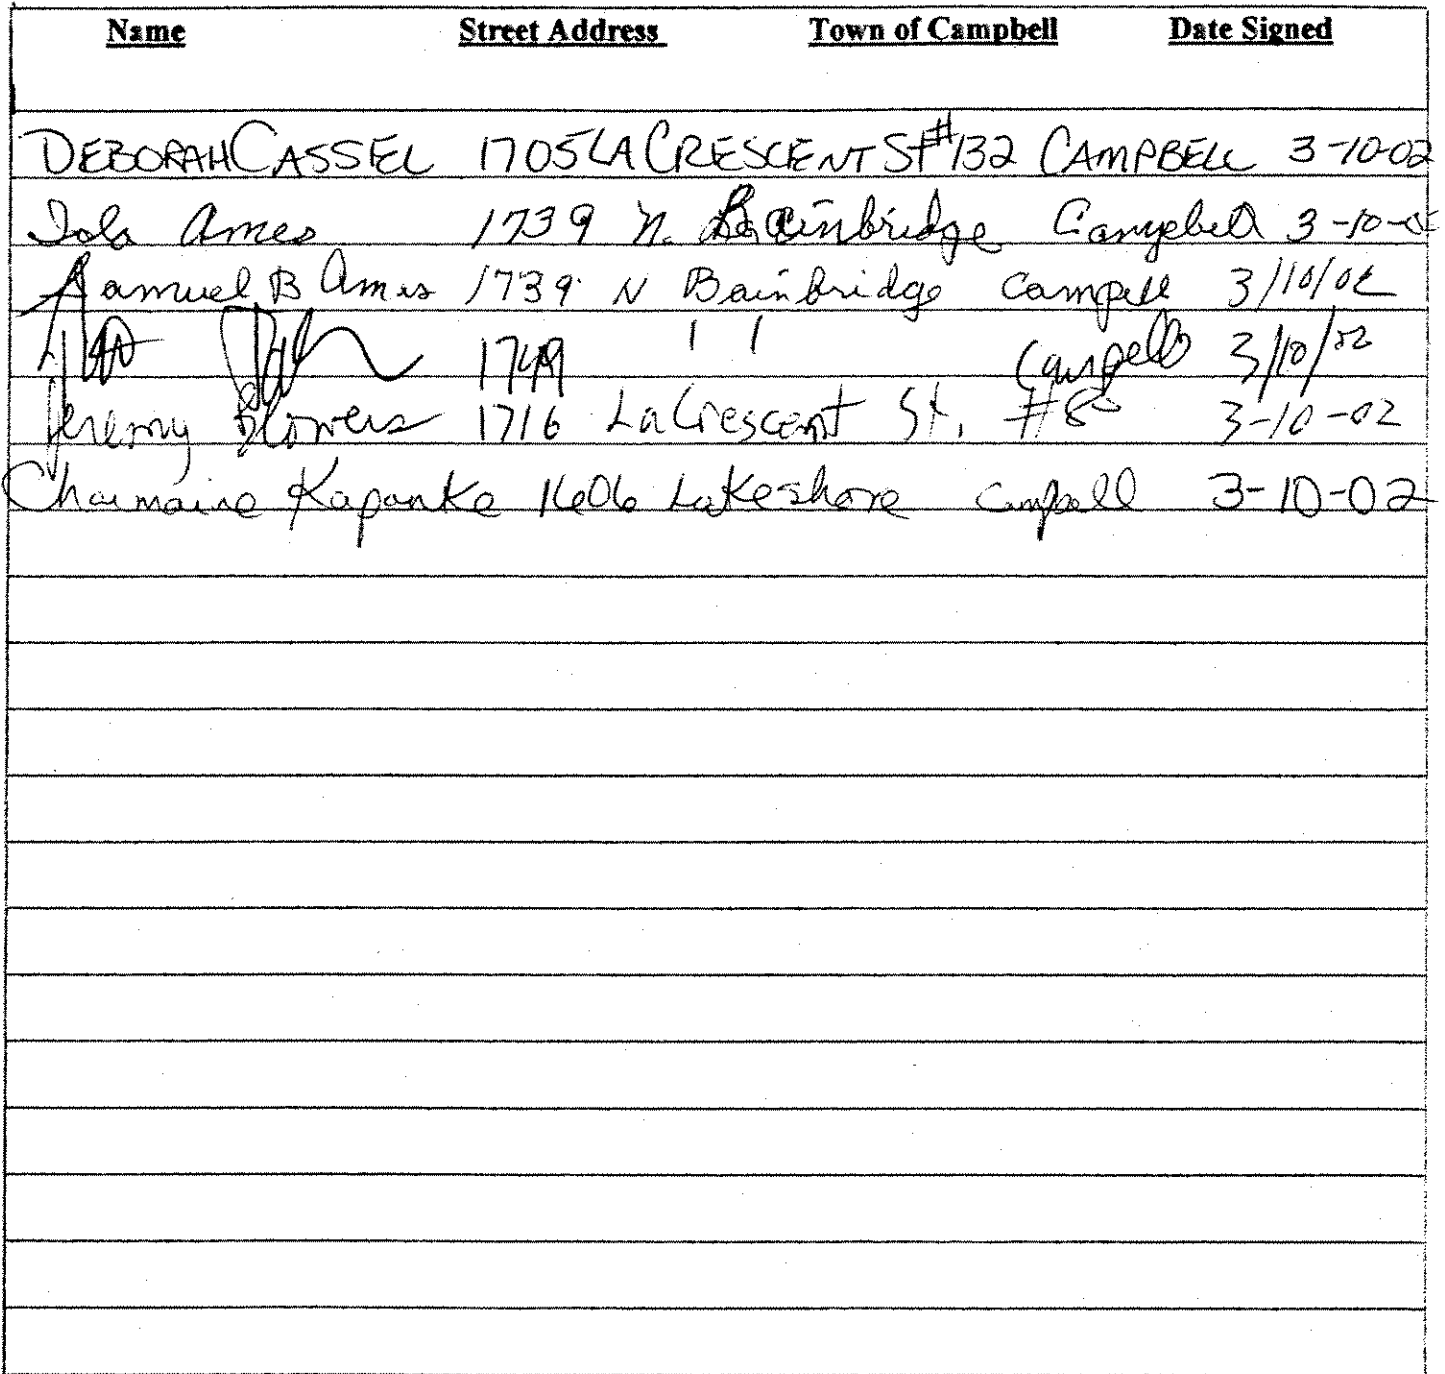 Name Street Address Town of Campbell Date Signed
DEBORAH CASSEL 1705 LA CRESCENT St #132 CAMPBELL 3-10-02
Iola Ames 1739 N. Bainbridge Campbell 3-10-02
Samuel B Ames 1739 N Bainbridge Campell 3/10/02
1749 " Campbell 3/10/02
Jeremy Blowers 1716 LaCrescent St. #8 3-10-02
Charmaine Kapanke 1606 Lakeshore Campbell 3-10-02